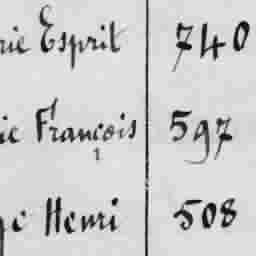 rie Esprit 740
ie François 597
ge Henri 508